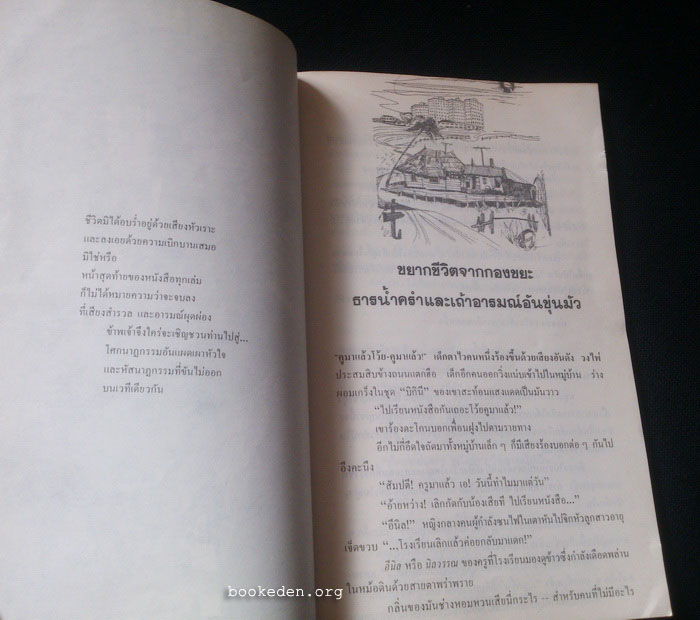 ชีวิตมิได้อบร่ำอยู่ด้วยเสียงหัวเราะ
และลงเอยด้วยความเบิกบานเสมอ
มิใช่หรือ
หน้าสุดท้ายของหนังสือทุกเล่ม
ก็ไม่ได้หมายความว่าจะจบลง
ที่เสียงสำรวล และอารมณ์ผุดผ่อง
ข้าพเจ้าจึงใคร่จะเชิญชวนท่านไปสู่...
โศกนาฏกรรมอันแผดเผาหัวใจ
และหัสนาฏกรรมที่ขันไม่ออก
บนเวทีเดียวกัน
ขยากชีวิตจากกองขยะ
ธารน้ำครำและเถ้าอารมณ์อันขุ่นมัว
"คูมาแล้วโว้ย-คูมาแล้ว!" เด็กตาไวคนหนึ่งร้องขึ้นด้วยเสียงอันดัง วงไพ่
ประสมสิบข้างถนนแตกฮือ เด็กอีกคนออกวิ่งแน่บเข้าไปในหมู่บ้าน ร่าง
ผอมเกร็งในชุด "บิกินี" ของเขาสะท้อนแสงแดดเป็นมันวาว
"ไปเรียนหนังสือกันเถอะโว้ยคูมาแล้ว!"
เขาร้องตะโกนบอกเพื่อนฝูงไปตามรายทาง
อีกไม่กี่อึดใจถัดมาทั้งหมู่บ้านเล็ก ๆ ก็มีเสียงร้องบอกต่อ ๆ กันไป
อึงคะนึง
"สัมปดี! ครูมาแล้ว เอ! วันนี้ทำไมมาแต่วัน"
"อ้ายหว่าง! เลิกกัดกับน้องเสียที ไปเรียนหนังสือ..."
"อีนิล!" หญิงกลางคนผู้กำลังซนไฟในเตาหันไปจิกหัวลูกสาวอายุ
เจ็ดขวบ "...โรงเรียนเลิกแล้วค่อยกลับมาแดก!"
อีนิล หรือ นิลวรรณ ของครูที่โรงเรียนมองดูข้าวซึ่งกำลังเดือดพล่าน
ในหม้อดินด้วยสายตาพร่าพราย
กลิ่นของมันช่างหอมหวนเสียนี่กระไร -- สำหรับคนที่ไม่มีอะไร
bookeden.org